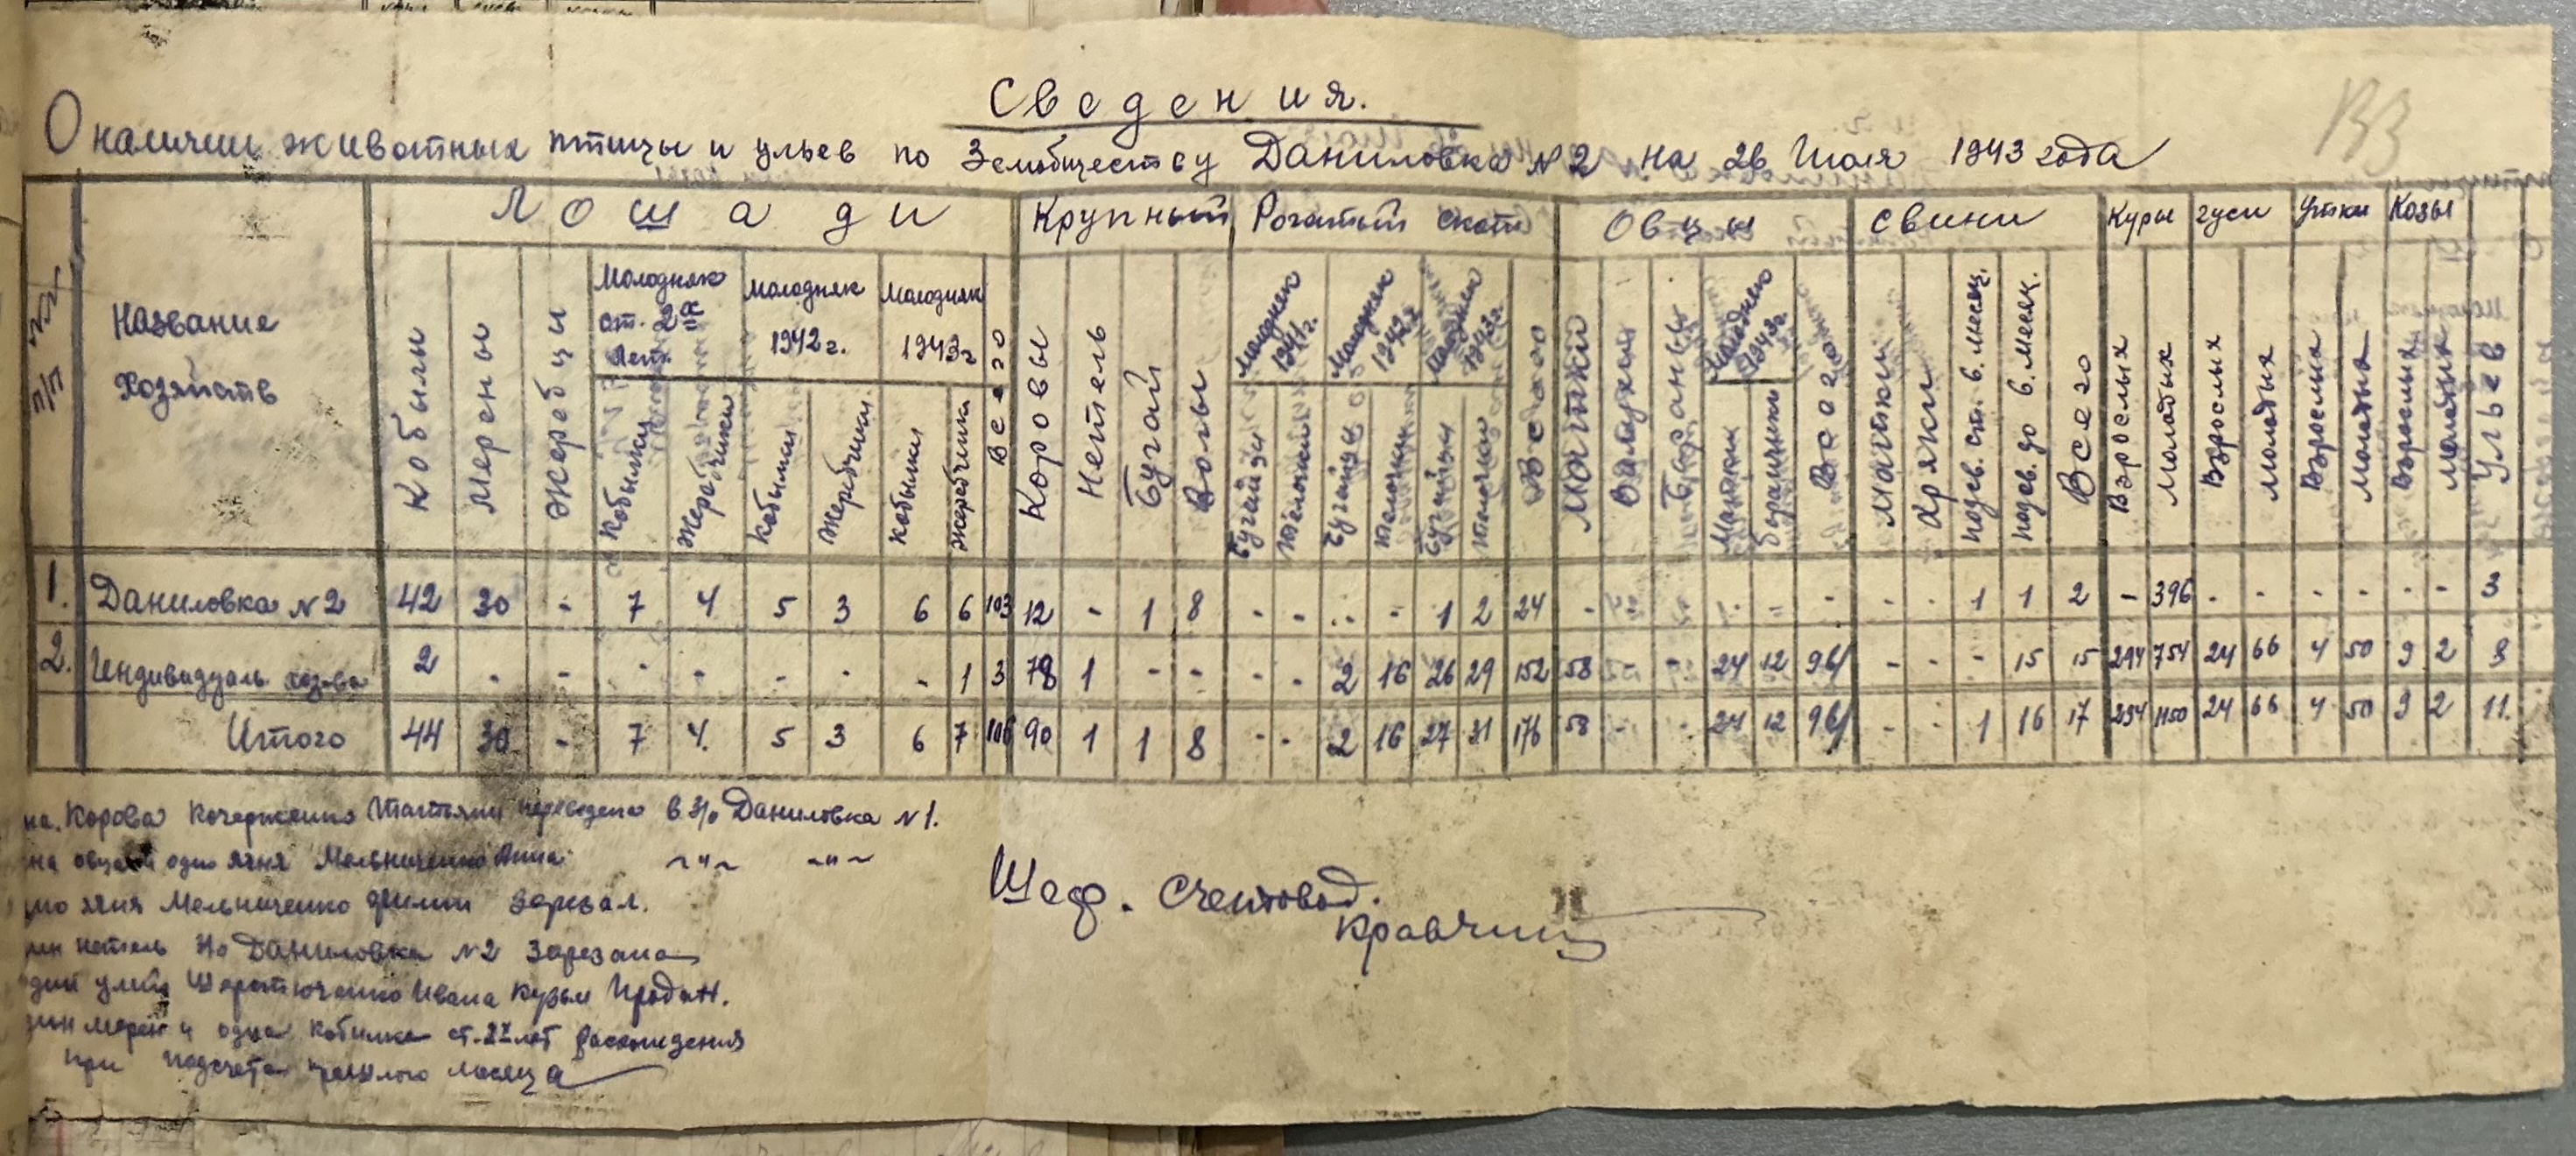 Сведения.
О наличии животных птицы и ульев по Земобществу Даниловка №2 на 26 Июля 1943 года
133
№№ п/п
Название хозяйств
Лошади
Крупный Рогатый скот
Овцы
Свини
Куры
Гуси
Утки
Козы
Кобылы
Мерены
Жеребцы
Молодняк ст. 2х лет
Молодняк 1942 г.
Молодняк 1943 г
Кобылки
Жеребчики
Кобылки
Жеребчики
Кобылки
Жеребчики
Всего
Коровы
Нетель
Бугай
Волы
Молодняк 1941 г.
Молодняк 1942 г
Молодняк 1943 г.
Бугайци
Телочки
Бугайци
Телочки
Бугайци
Телочки
Всего
Матки
Валухи
Бараны
Молодняк 1943 г.
Матки
баранчики
Всего
Матки
Хряки
Подсв. ст. 6. месяц.
Подсв. до 6. месяц.
Всего
Взрослых
Молодых
Взрослых
Молодых
Взрослых
Молодых
Взрослых
Молодых
Ульев
1. Даниловка №2 42 30 - 7 4 5 3 6 6 103 12 - 1 8 - - - - 1 2 24 - - - - - - - - 1 1 2 - 396 - - - - - - 3
2. Индивидуаль. хоз-ва 2 - - - - - - - 1 3 78 1 - - - - 2 16 26 29 152 58 - - 24 12 94 - - - 15 15 294 754 24 66 4 50 9 2 8
Итого 44 30 - 7 4. 5 3 6 7 106 90 1 1 8 - - 2 16 27 31 176 58 - - 24 12 94 - - 1 16 17 294 1150 24 66 4 50 9 2 11.
на. Корова Кочерженко Татьяни переведена в З/о Даниловка №1.
на овца и одно ягня Мельниченко Анна ~"~ ~"~
но ягня Мельниченко зарезал.
ин нетель З/о Даниловка №2 Зарезана
дин улий Ивана Кузьм Продан.
дин мерен и одна кобилка ст. 2х лет расхождения
при подсчете прошлого месяца
Шеф. Счетовод.
Кравчин